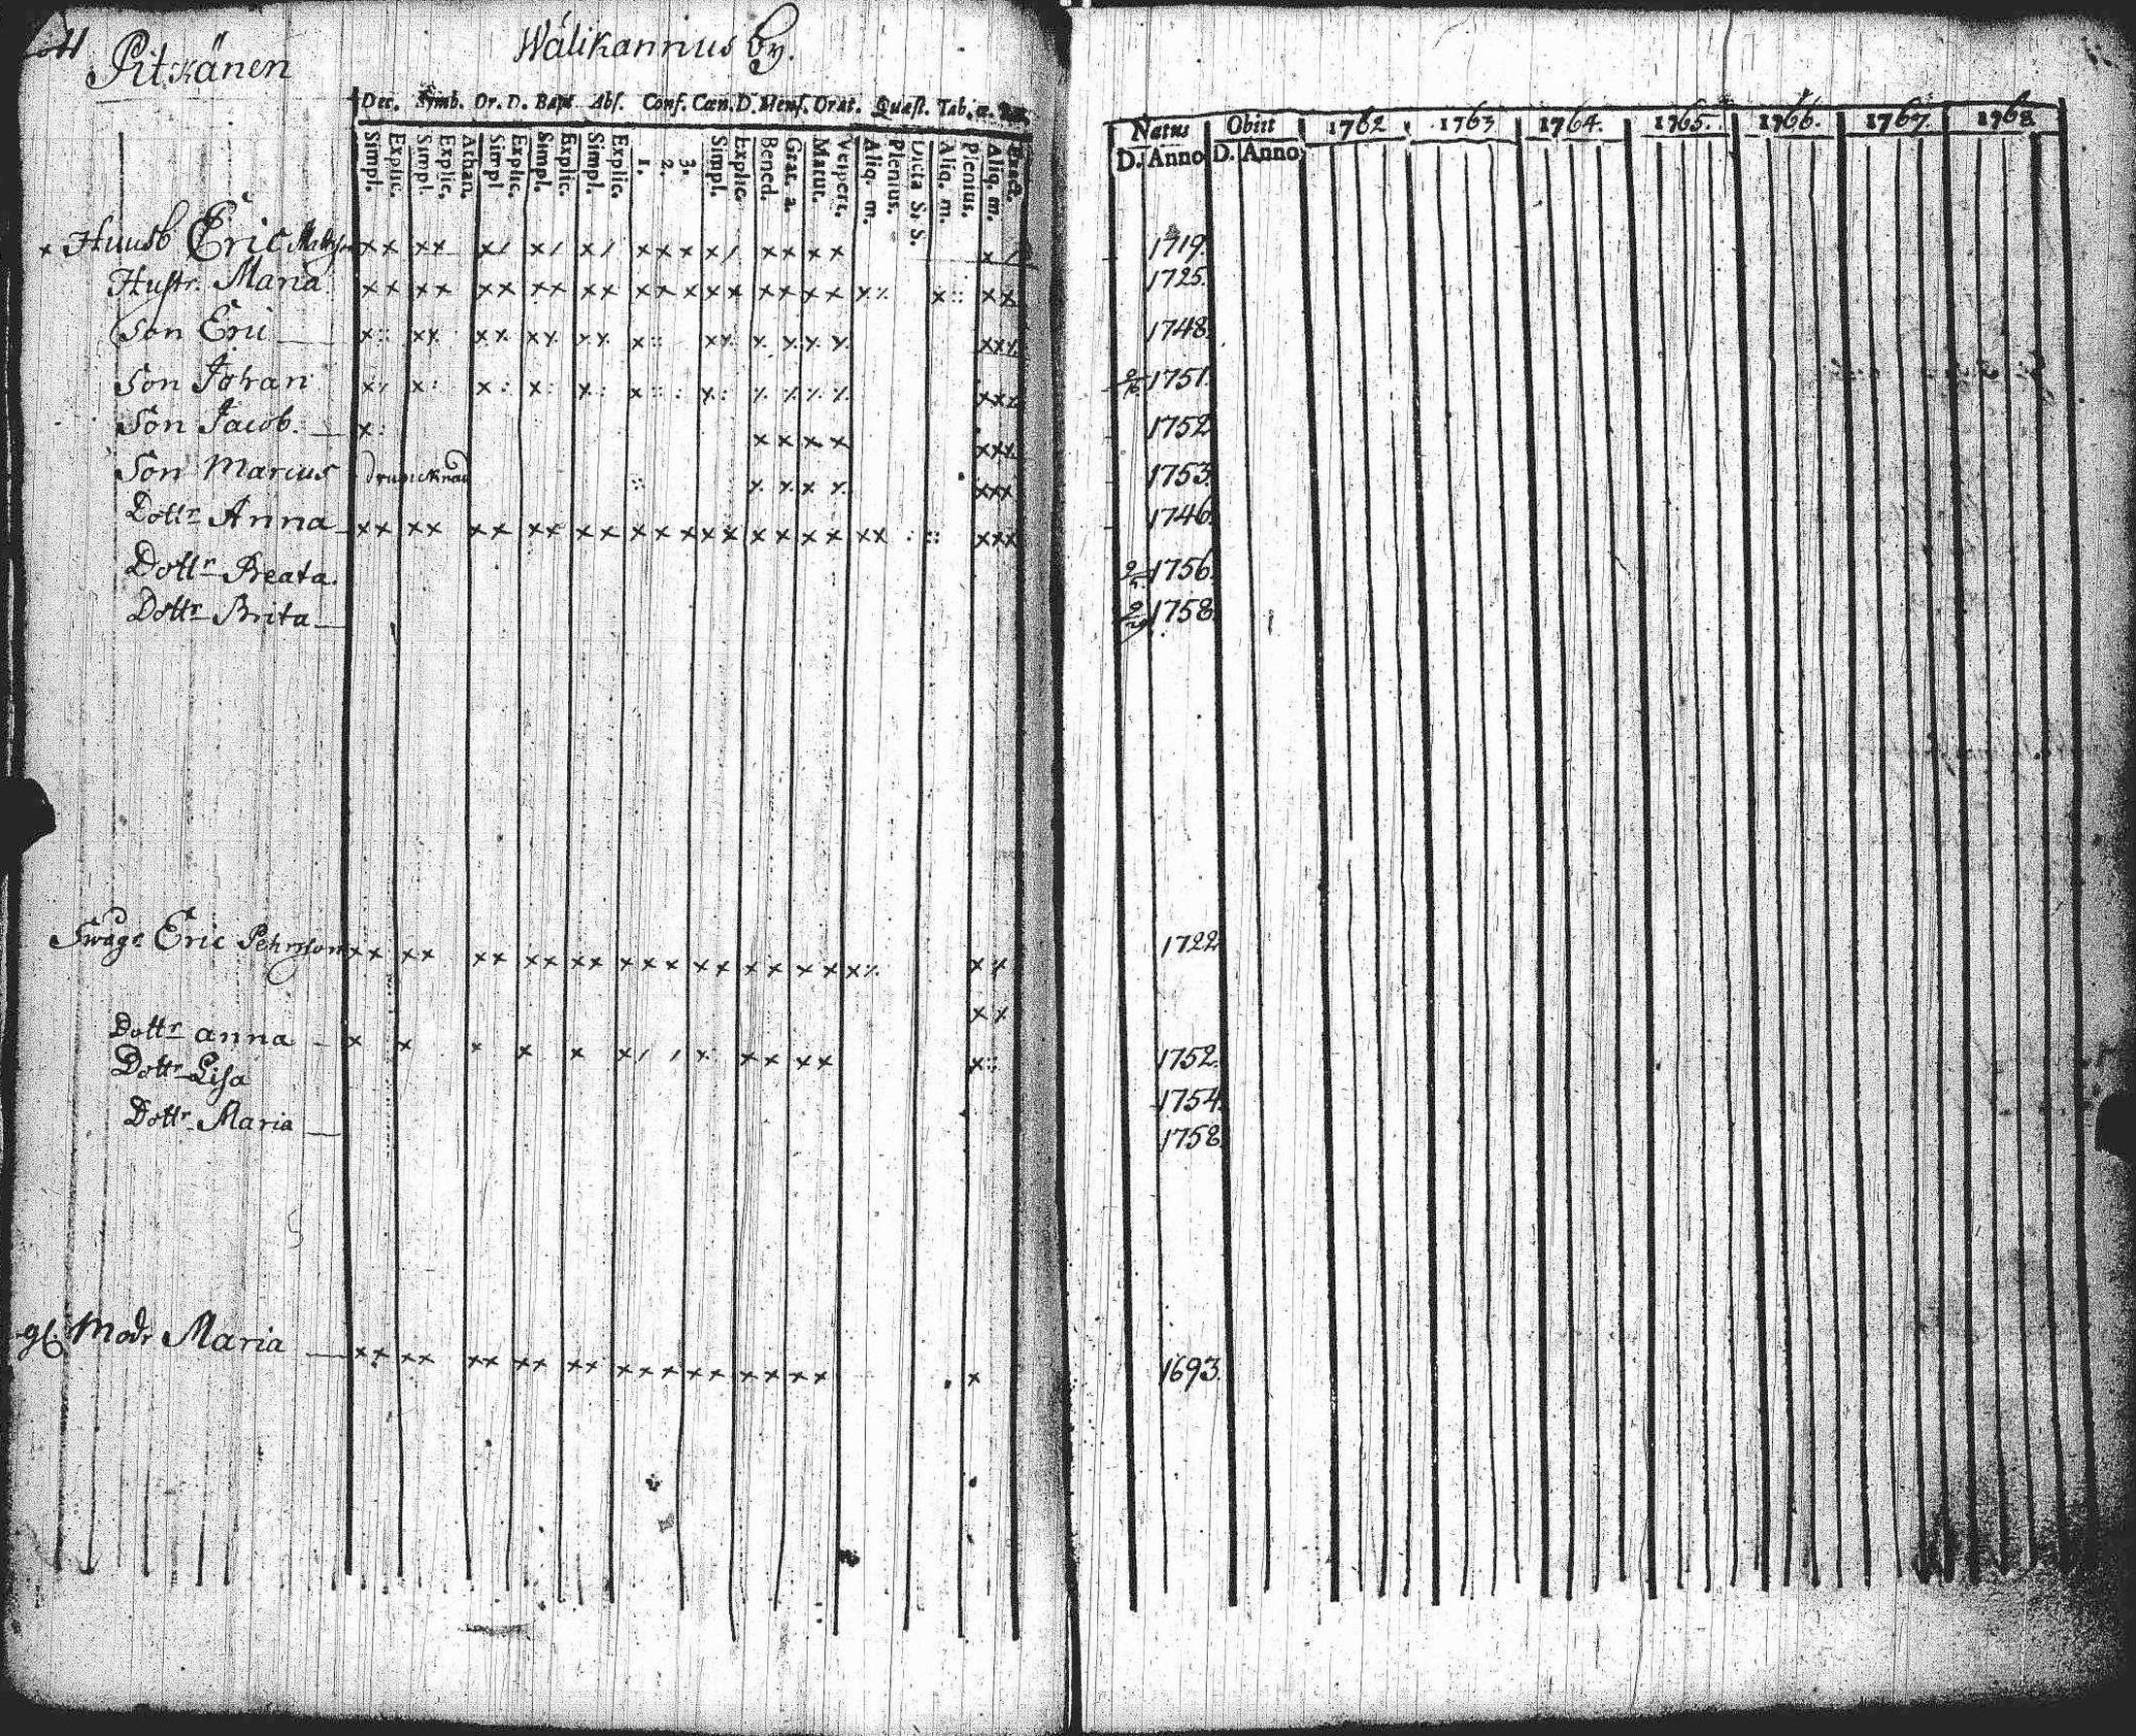 Pitkänen
Wälikannus by.
Dec. Symb. Or. D. Bapt. Abs. Conf. Cœn. D. Mens. Orat. Quæst. Tab. œ.
Simpl. Explic. Simpl. Explic. Athan. Simpl Explic. Simpl. Explic. Simpl. Explic. 1. 2. 3. Simpl. Explic. Bened. Grat. a. Matut. Vespert. Aliq. m. Plenius. Dicta S. S. Aliq. m. Plenius. Aliq. m. Exact.
Natus Obiit 1762 1763 1764. 1765. 1766. 1767. 1768
D. Anno D. Anno
× Husb Eric Mattsson ×× ×× ×/ ×/ ×/ ××× ×/ ×× ×× 1719.
Hustr. Maria ×× ×× ×× ×× ×× ××× ×× ×× ×× 1725.
Son Eric 1748.
Son Johan 1751.
Son Jacob. 1752
Son Marcus druncknad 1753.
Dottr Anna ×× ×× ×× ×× ×× ××× ×× ×× ×× ×× ××× 1746.
Dottr Beata. 1756.
Dottr Brita 1758.
Swågr Eric Pehrsson ×× ×× ×× ×× ×× ××× ×× ×× ×× 1722
××
Dottr anna × × × × × 1752.
Dottr Lisa 1754.
Dottr Maria 1758.
gl. Modr Maria ×× ×× ×× ×× ×× ××× ×× ×× ×× × 1693.